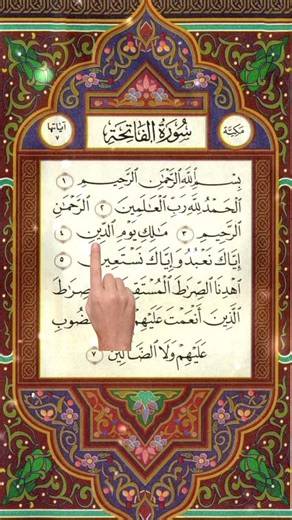 مَكِّيَّة سُورَةُ الفَاتِحَةِ آيَاتُهَا ٧
بِسْمِ ٱللَّهِ ٱلرَّحْمَٰنِ ٱلرَّحِيمِ ١
ٱلْحَمْدُ لِلَّهِ رَبِّ ٱلْعَٰلَمِينَ ٢ ٱلرَّحْمَٰنِ
ٱلرَّحِيمِ ٣ مَٰلِكِ يَوْمِ ٱلدِّينِ ٤
إِيَّاكَ نَعْبُدُ وَإِيَّاكَ نَسْتَعِينُ ٥
ٱهْدِنَا ٱلصِّرَٰطَ صِرَٰطَ
ٱلَّذِينَ أَنْعَمْتَ عَلَيْهِمْ
عَلَيْهِمْ وَلَا ٱلضَّآلِّينَ ٧